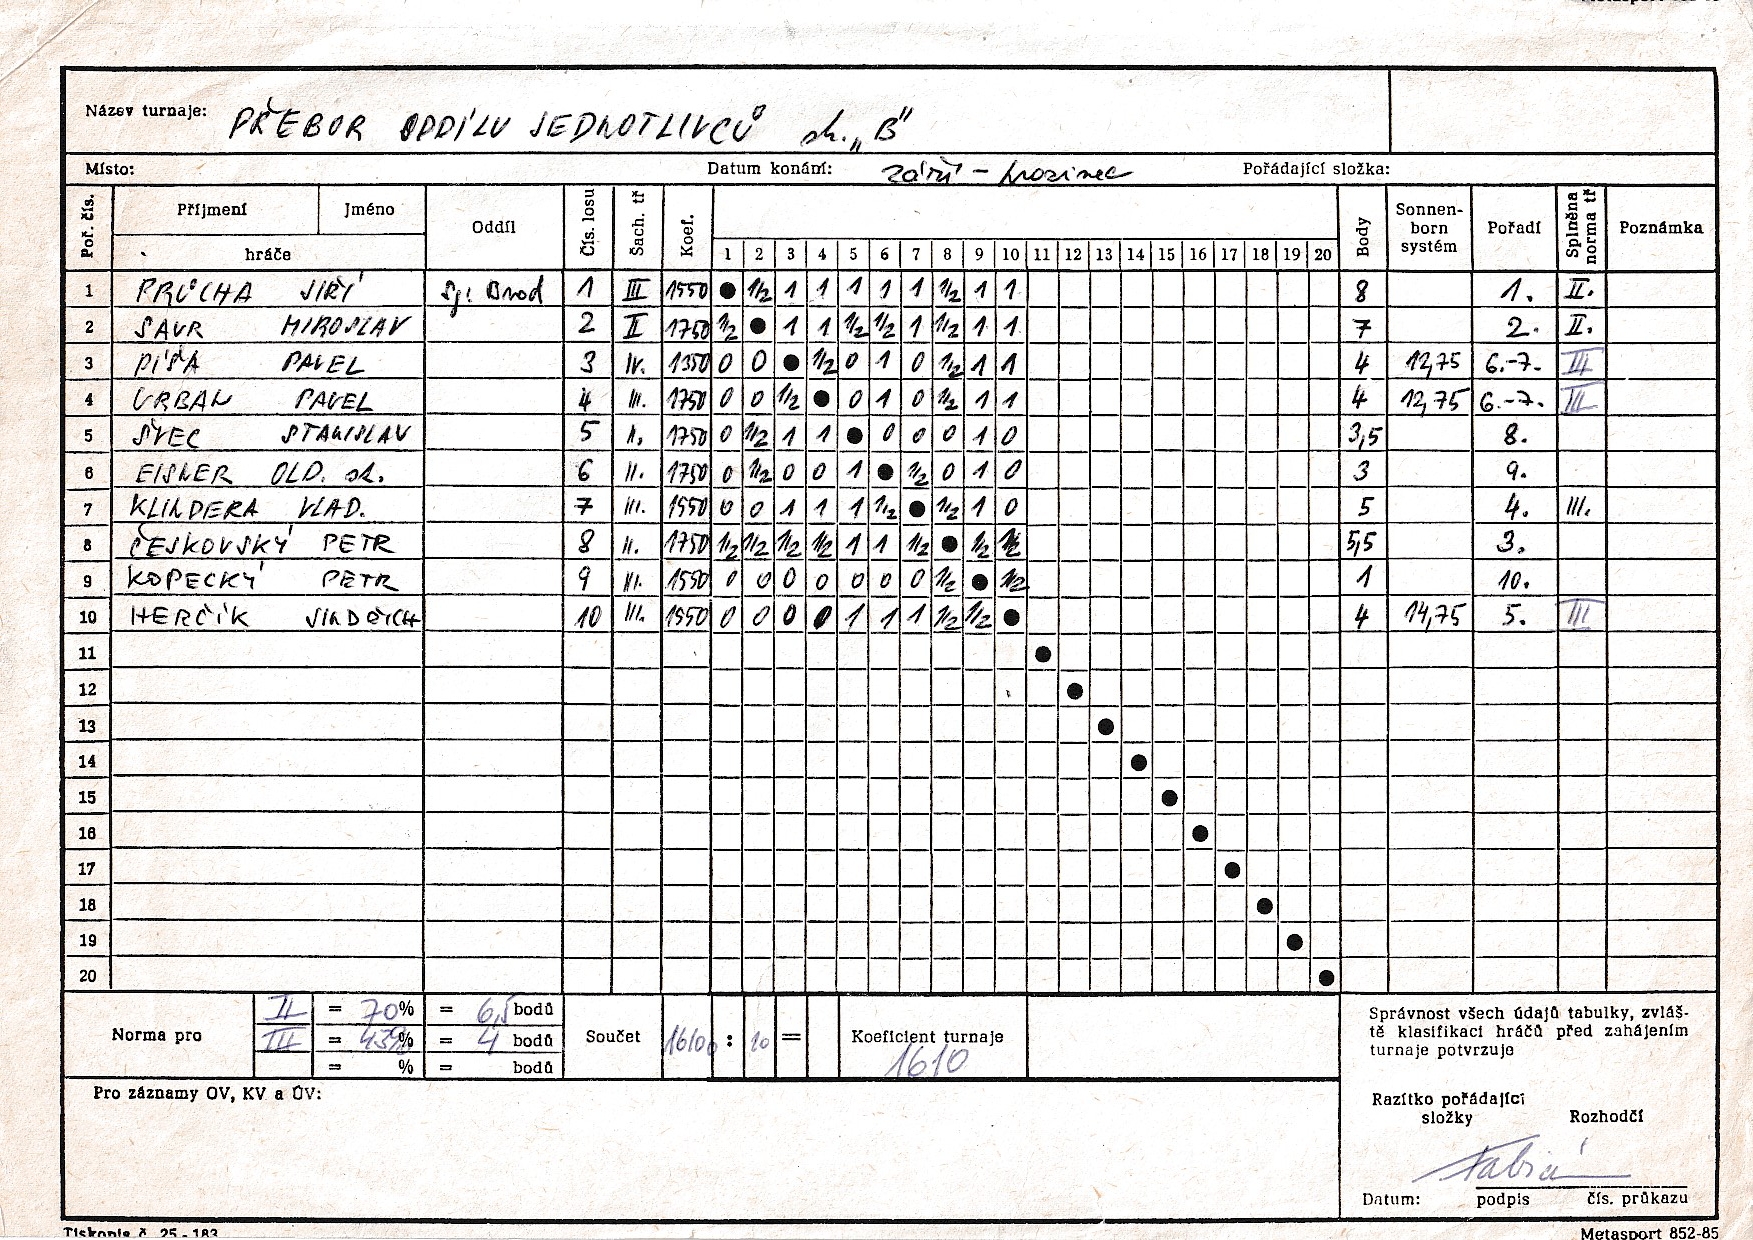 Název turnaje: PŘEBOR ODDÍLU JEDNOTLIVCŮ sk. „B"
Místo: Datum konání: září - prosinec Pořádající složka:
Poř. čís. Příjmení Jméno hráče Oddíl Čís. losu Šach. tř Koef. 1 2 3 4 5 6 7 8 9 10 11 12 13 14 15 16 17 18 19 20 Body Sonnenborn systém Pořadí Splněna norma tř Poznámka
1 PRŮCHA JIŘÍ Sp. Brod 1 III 1550 ● 1/2 1 1 1 1 1 1/2 1 1 8 1. II.
2 SAVR MIROSLAV 2 II 1750 1/2 ● 1 1 1/2 1/2 1 1/2 1 1 7 2. II.
3 PÍŠA PAVEL 3 IV. 1350 0 0 ● 1/2 0 1 0 1/2 1 1 4 12,75 6.-7. III
4 URBAN PAVEL 4 III. 1750 0 0 1/2 ● 0 1 0 1/2 1 1 4 12,75 6.-7. III
5 ŠVEC STANISLAV 5 II. 1750 0 1/2 1 1 ● 0 0 0 1 0 3,5 8.
6 EISNER OLD. st. 6 II. 1750 0 1/2 0 0 1 ● 1/2 0 1 0 3 9.
7 KLINDERA VLAD. 7 III. 1550 0 0 1 1 1 1/2 ● 1/2 1 0 5 4. III.
8 ČESKOVSKÝ PETR 8 II. 1750 1/2 1/2 1/2 1/2 1 1 1/2 ● 1/2 1/2 5,5 3.
9 KOPECKÝ PETR 9 III. 1550 0 0 0 0 0 0 0 1/2 ● 1/2 1 10.
10 HERČÍK JINDŘICH 10 III. 1550 0 0 0 0 1 1 1 1/2 1/2 ● 4 14,75 5. III
11 ●
12 ●
13 ●
14 ●
15 ●
16 ●
17 ●
18 ●
19 ●
20 ●
Norma pro II = 70% = 6,5 bodů
III = 43% = 4 bodů
= % = bodů
Součet 16100 : 10 = Koeficient turnaje 1610
Pro záznamy OV, KV a ÚV:
Správnost všech údajů tabulky, zvláš-
tě klasifikaci hráčů před zahájením
turnaje potvrzuje
Razítko pořádající složky Rozhodčí
Fabián
Datum: podpis čís. průkazu
Tiskopis č. 25 - 183 Metasport 852-85